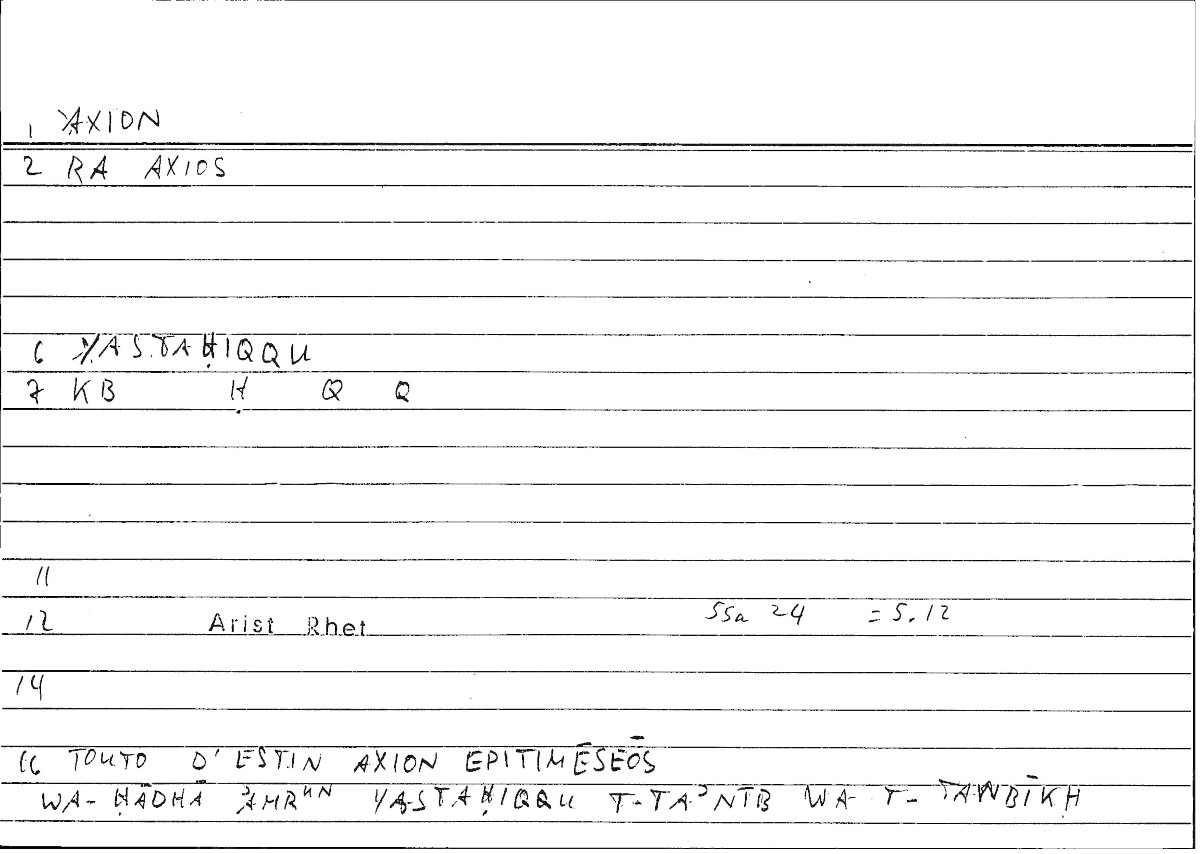 1 AXION
2 RA AXIOS
6 YASTAḤIQQU
7 KB Ḥ Q Q
11
12 Arist Rhet 55a 24 = 5.12
14
16 TOUTO D' ESTIN AXION EPITIMĒSEŌS
WA-ḤĀDHĀ ʾAMRᵁᴺ YASTAḤIQQU T-TAʾNĪB WA T-TAWBĪKH